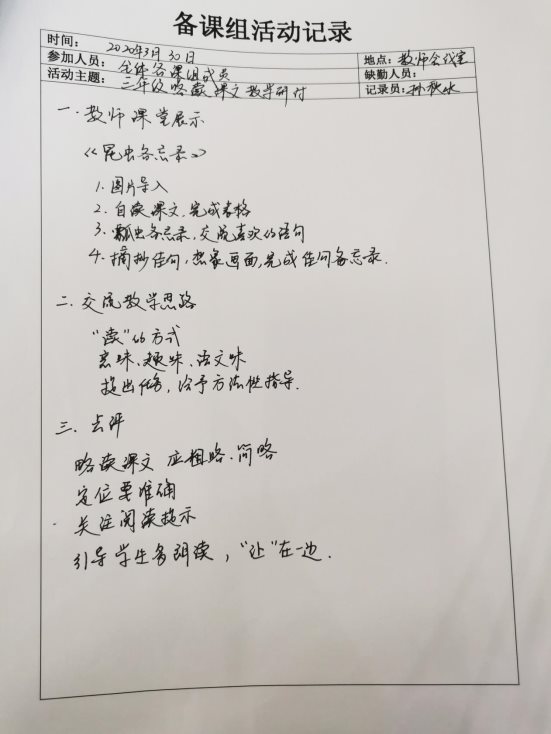 备课组活动记录
时间： 2020年3月30日
地点：教师会议室
参加人员： 全体备课组成员
缺勤人员：
活动主题： 三年级略读课文教学研讨
记录员：孙秋水
一、教师课堂展示
《昆虫备忘录》
1. 图片导入
2. 自读课文，完成表格
3. 瓢虫备忘录，交流喜欢的语句
4. 摘抄佳句，想象画面，完成佳句备忘录.
二、交流教学思路
"读"的方式
意味、趣味、语文味
提出任务，给予方法性指导.
三、点评
略读课文 应粗略、简略
定位要准确
关注阅读提示
引导学生多朗读，"让"在一边.